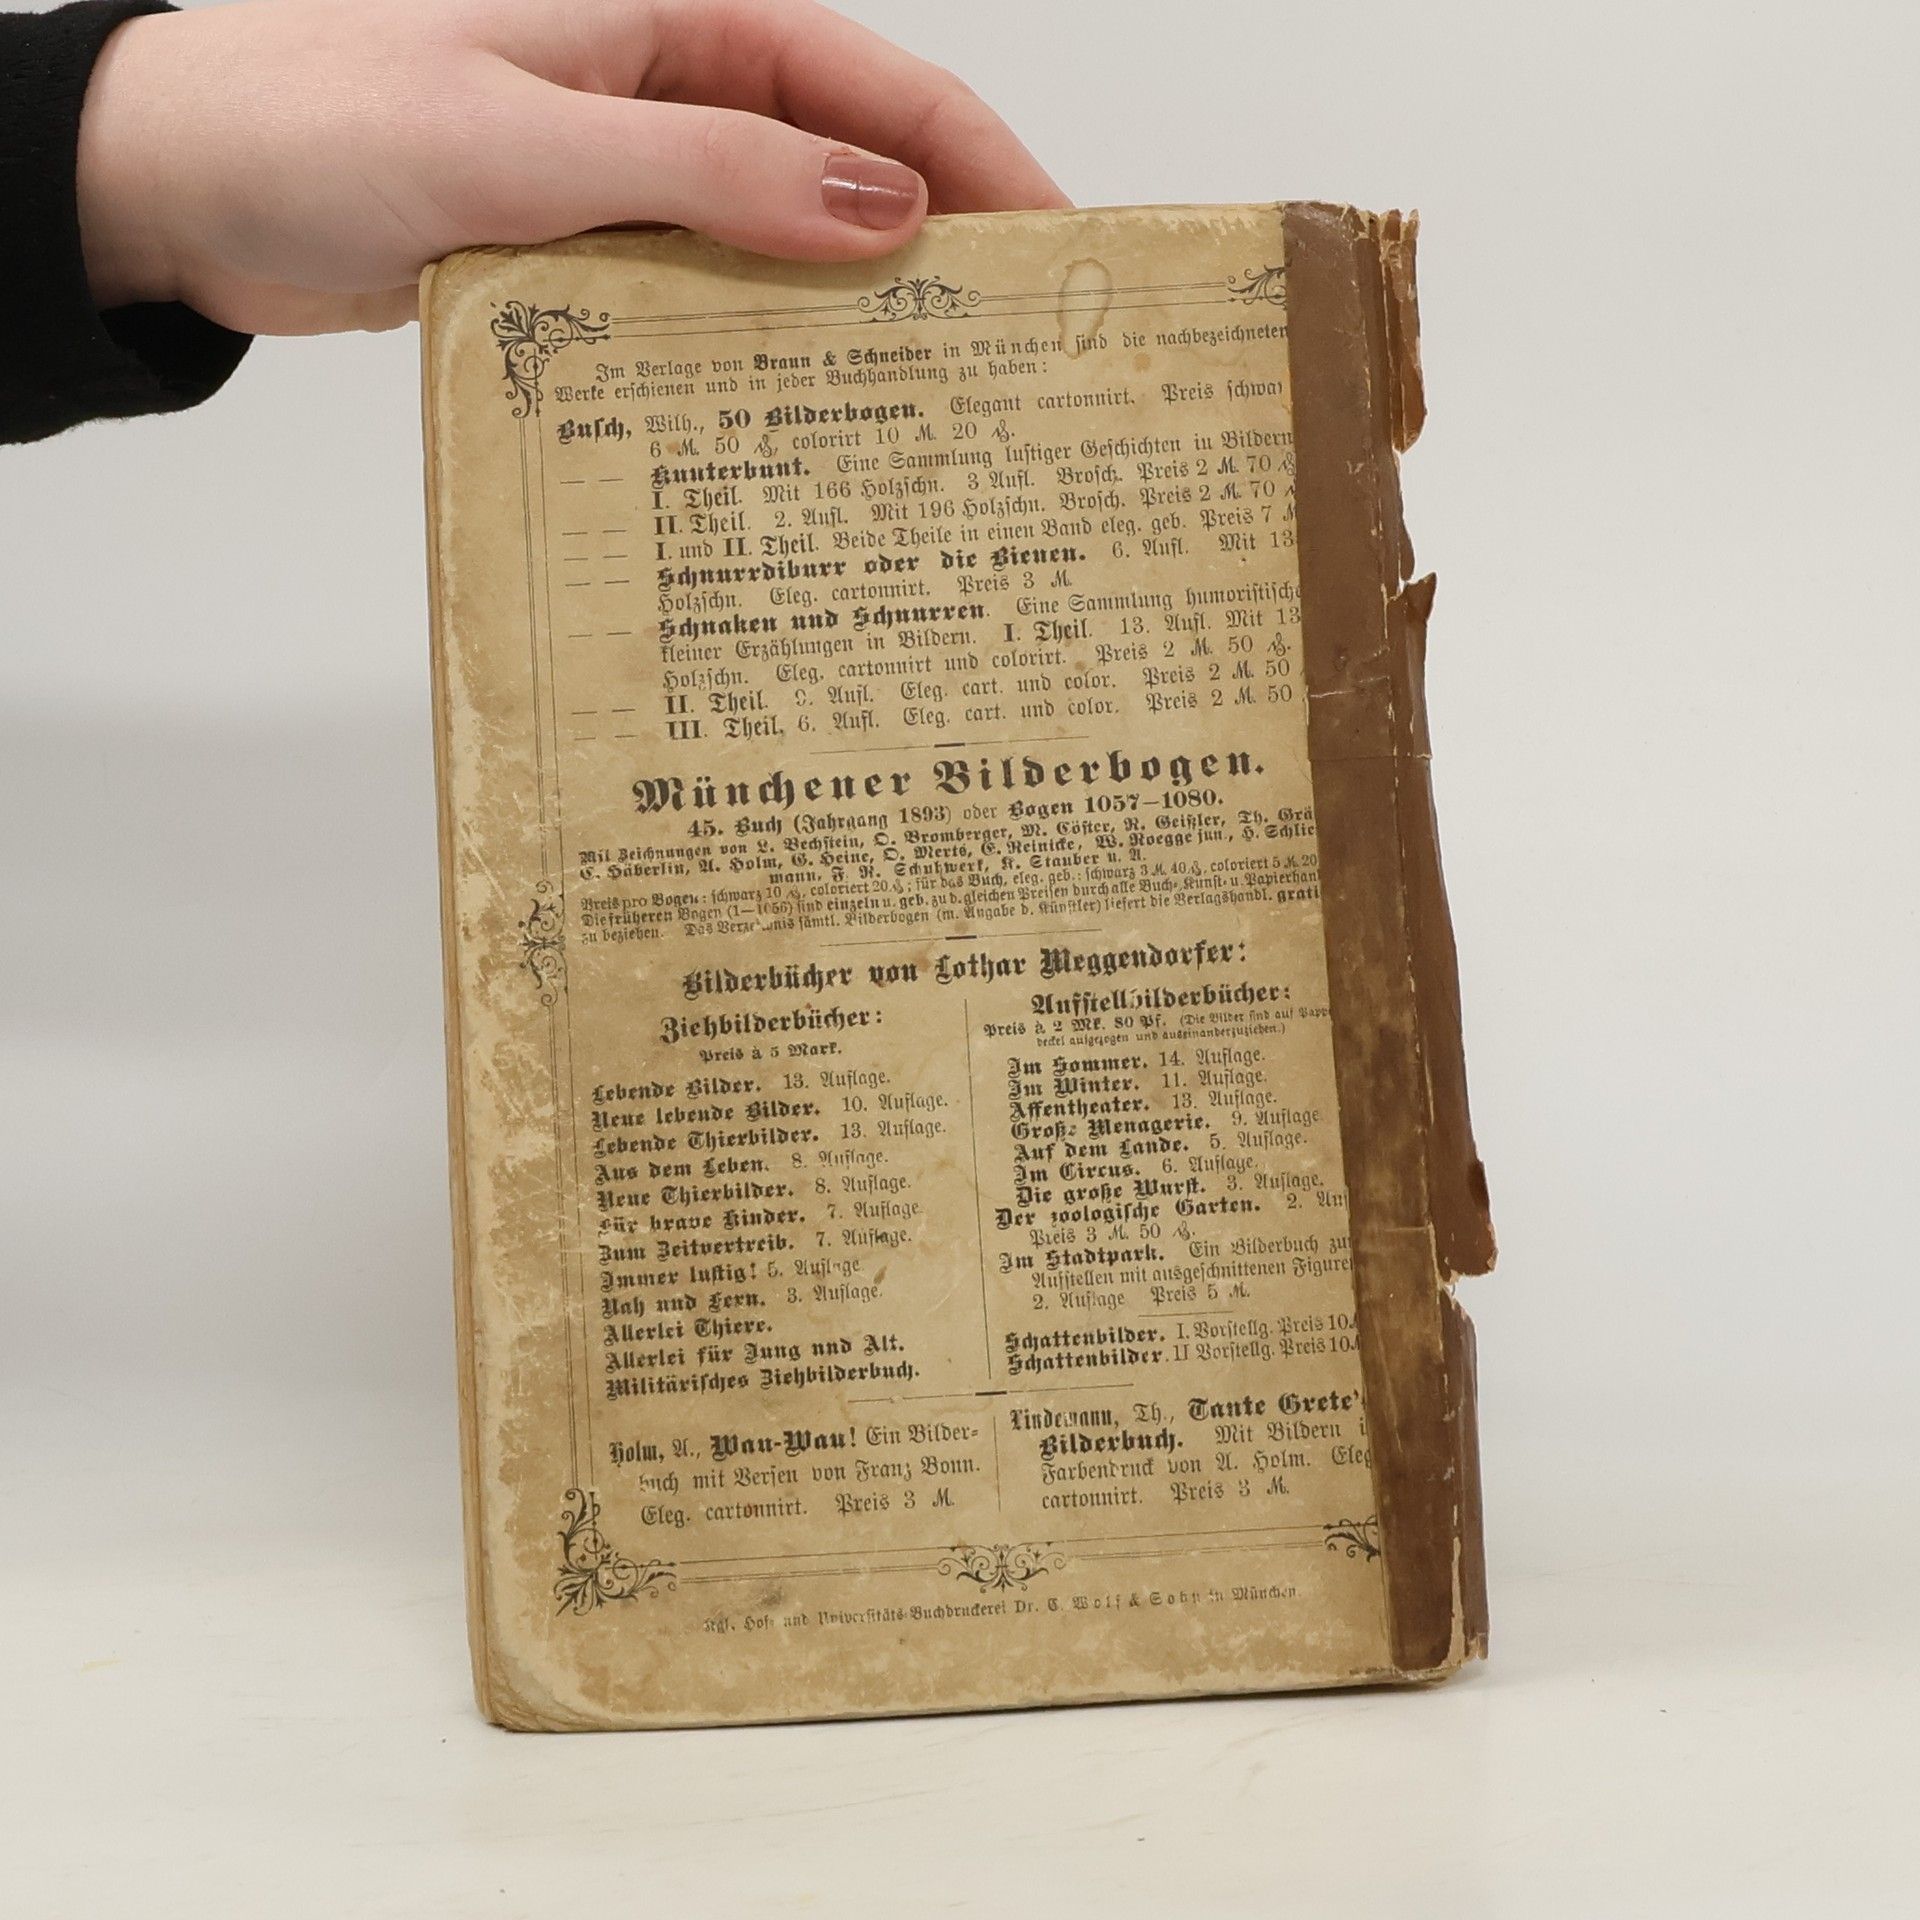 Im Verlage von Braun & Schneider in München sind die nachbezeichneten
Werke erschienen und in jeder Buchhandlung zu haben:
Busch, Wilh., 50 Bilderbogen. Elegant cartonnirt. Preis schwar
6 M. 50 ₰, colorirt 10 M. 20 ₰.
— — Kunterbunt. Eine Sammlung lustiger Geschichten in Bildern
I. Theil. Mit 166 Holzschn. 3 Aufl. Brosch. Preis 2 M. 70 ₰
— — II. Theil. 2. Aufl. Mit 196 Holzschn. Brosch. Preis 2 M. 70
— — I. und II. Theil. Beide Theile in einen Band eleg. geb. Preis 7 M
— — Schnurrdiburr oder die Bienen. 6. Aufl. Mit 13
Holzschn. Eleg. cartonnirt. Preis 3 M.
— — Schnaken und Schnurren. Eine Sammlung humoristische
kleiner Erzählungen in Bildern. I. Theil. 13. Aufl. Mit 13
Holzschn. Eleg. cartonnirt und colorirt. Preis 2 M. 50 ₰.
— — II. Theil. 9. Aufl. Eleg. cart. und color. Preis 2 M. 50
— — III. Theil, 6. Aufl. Eleg. cart. und color. Preis 2 M. 50
Münchener Bilderbogen.
45. Buch (Jahrgang 1893) oder Bogen 1057—1080.
Mit Zeichnungen von L. Bechstein, O. Bromberger, M. Cöster, R. Geißler, Th. Grä
C. Häberlin, A. Holm, G. Heine, O. Merts, E. Reinicke, W. Roegge jun., H. Schlie
mann, F. R. Schuhwerk, K. Stauber u. A.
Preis pro Bogen: schwarz 10 ₰, coloriert 20 ₰; für das Buch, eleg. geb.: schwarz 3 M. 40 ₰, coloriert 5 M. 20
Die früheren Bogen (1—1056) sind einzeln u. geb. zu d. gleichen Preisen durch alle Buch-, Kunst- u. Papierhan
zu beziehen. Das Verzeichnis sämtl. Bilderbogen (m. Angabe d. Künstler) liefert die Verlagshandl. grati
Bilderbücher von Lothar Meggendorfer:
Ziehbilderbücher:
Preis à 5 Mark.
Lebende Bilder. 13. Auflage.
Neue lebende Bilder. 10. Auflage.
Lebende Thierbilder. 13. Auflage.
Aus dem Leben. 8. Auflage.
Neue Thierbilder. 8. Auflage.
Für brave Kinder. 7. Auflage
Zum Zeitvertreib. 7. Auflage.
Immer lustig! 5. Auflage
Nah und Fern. 3. Auflage.
Allerlei Thiere.
Allerlei für Jung und Alt.
Militärisches Ziehbilderbuch.
Aufstellbilderbücher:
Preis à 2 Mk. 80 Pf. (Die Bilder sind auf Pappe
deckel aufgezogen und auseinanderzuziehen.)
Im Sommer. 14. Auflage.
Im Winter. 11. Auflage.
Affentheater. 13. Auflage.
Große Menagerie. 9. Auflage
Auf dem Lande. 5. Auflage.
Im Circus. 6. Auflage.
Die große Wurst. 3. Auflage.
Der zoologische Garten. 2. Auf
Preis 3 M. 50 ₰.
Im Stadtpark. Ein Bilderbuch zu
Aufstellen mit ausgeschnittenen Figure
2. Auflage Preis 5 M.
Schattenbilder. I. Vorstellg. Preis 10
Schattenbilder. II Vorstellg. Preis 10
Holm, A., Wau-Wau! Ein Bilder-
buch mit Versen von Franz Bonn.
Eleg. cartonnirt. Preis 3 M.
Lindemann, Th., Tante Grete'
Bilderbuch. Mit Bildern i
Farbendruck von A. Holm. Eleg
cartonnirt. Preis 3 M.
Kgl. Hof- und Universitäts-Buchdruckerei Dr. C. Wolf & Sohn in München.